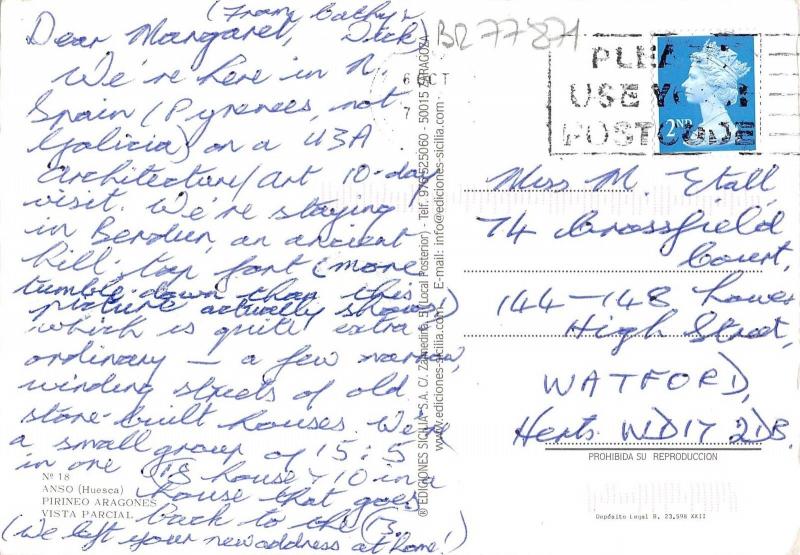 (From Cathy &
Dear Margaret, Dick)
We're here in N.
Spain (Pyrenees, not
Galicia) on a U3A
architecture/art 10-day
visit. We're staying
in Berdun, an ancient
hill-top fort (more
tumble-down than this
picture actually shows)
which is quite extra
ordinary — a few narrow,
winding streets of old
stone-built houses. We're
a small group of 15: 5
in one house & 10 in a
house that goes
back to the
(We left your new address at home!)
Nº 18
ANSO (Huesca)
PIRINEO ARAGONES
VISTA PARCIAL
® EDICIONES SICILIA S.A. C/. Zalmedina, 5 (Local Posterior) - Telf. 976 525060 - 50015 ZARAGOZA
www.ediciones-sicilia.com - E-mail: info@ediciones-sicilia.com
BR 77871
6 OCT
PLEASE
USE YOUR
POSTCODE
2ND
Miss M. Etall,
74 Crossfield
Court,
144-148 Lower
High Street,
WATFORD,
Herts WD17 2DB.
PROHIBIDA SU REPRODUCCION
Depósito Legal B. 23.598 XXII